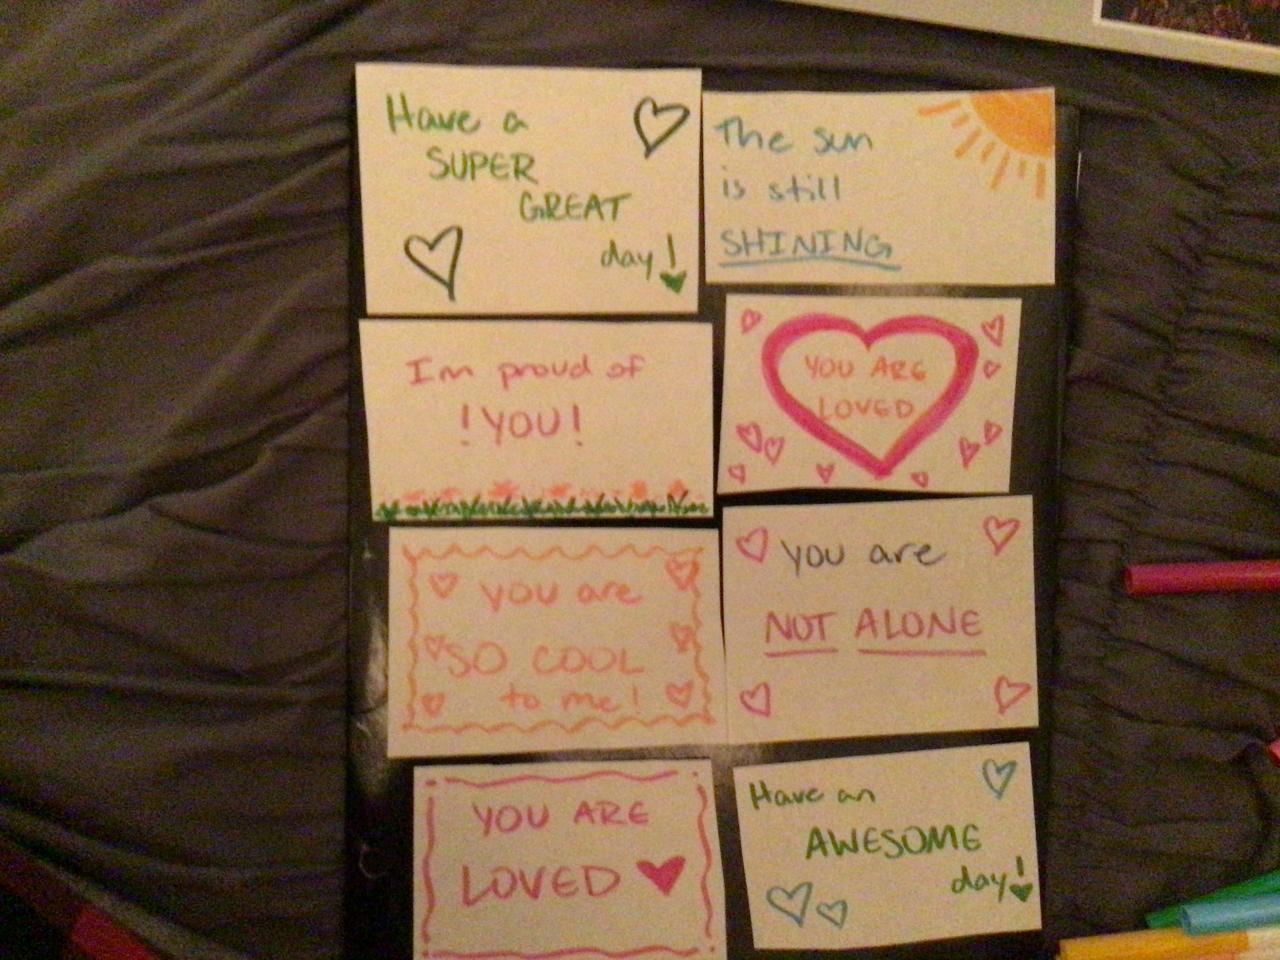 Have a
SUPER
GREAT
day!
The sun
is still
SHINING
I'm proud of
!YOU!
YOU ARE
LOVED
you are
SO COOL
to me!
you are
NOT ALONE
YOU ARE
LOVED
Have an
AWESOME
day!